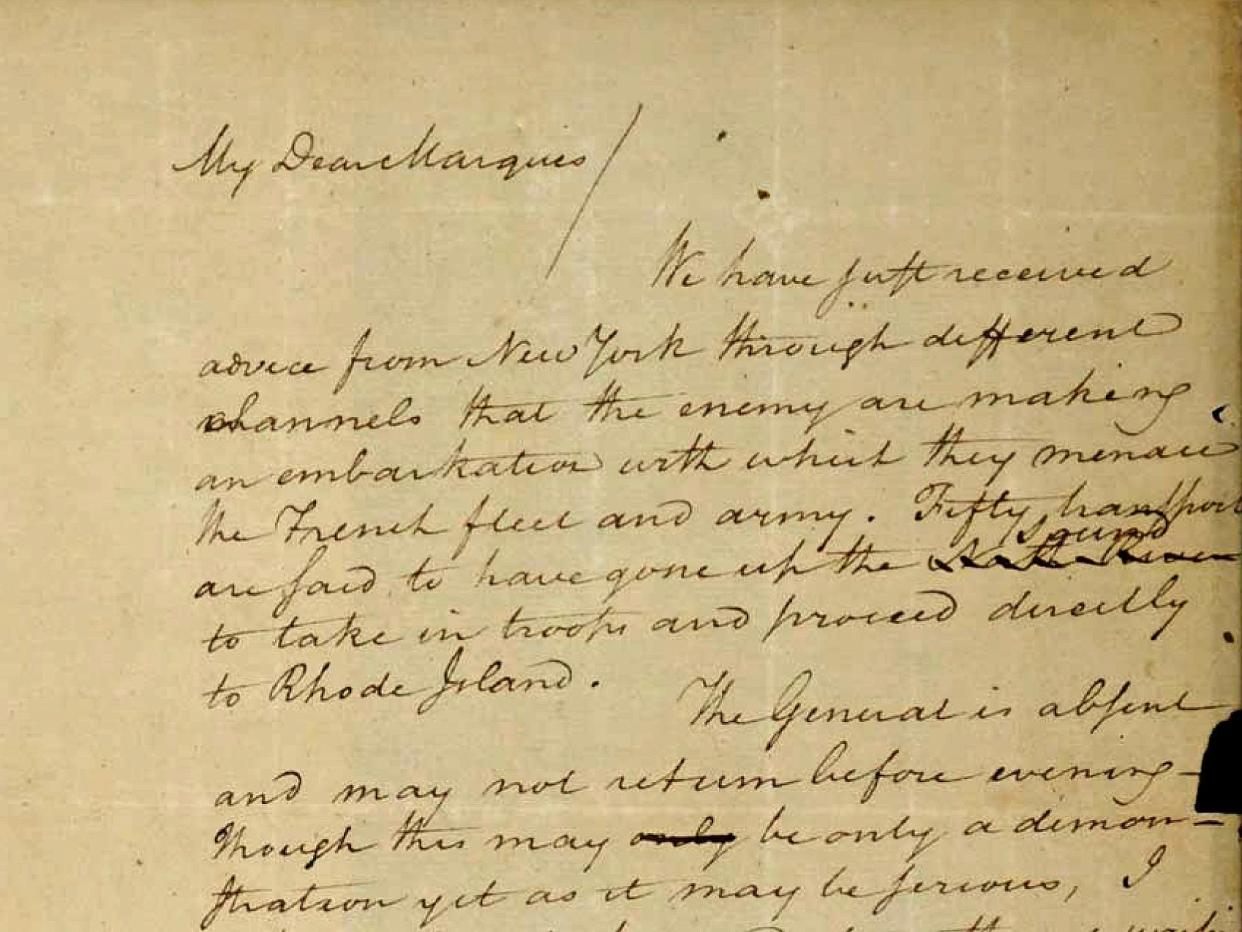 My Dear Marquis
We have just received
advice from New York through different
channels that the enemy are making
an embarkation with which they menace
the French fleet and army. Fifty transport
sound
are said to have gone up the
to take in troops and proceed directly
to Rhode Island.
The General is absent
and may not return before evening—
Though this may only be only a demon-
stration yet as it may be serious, I